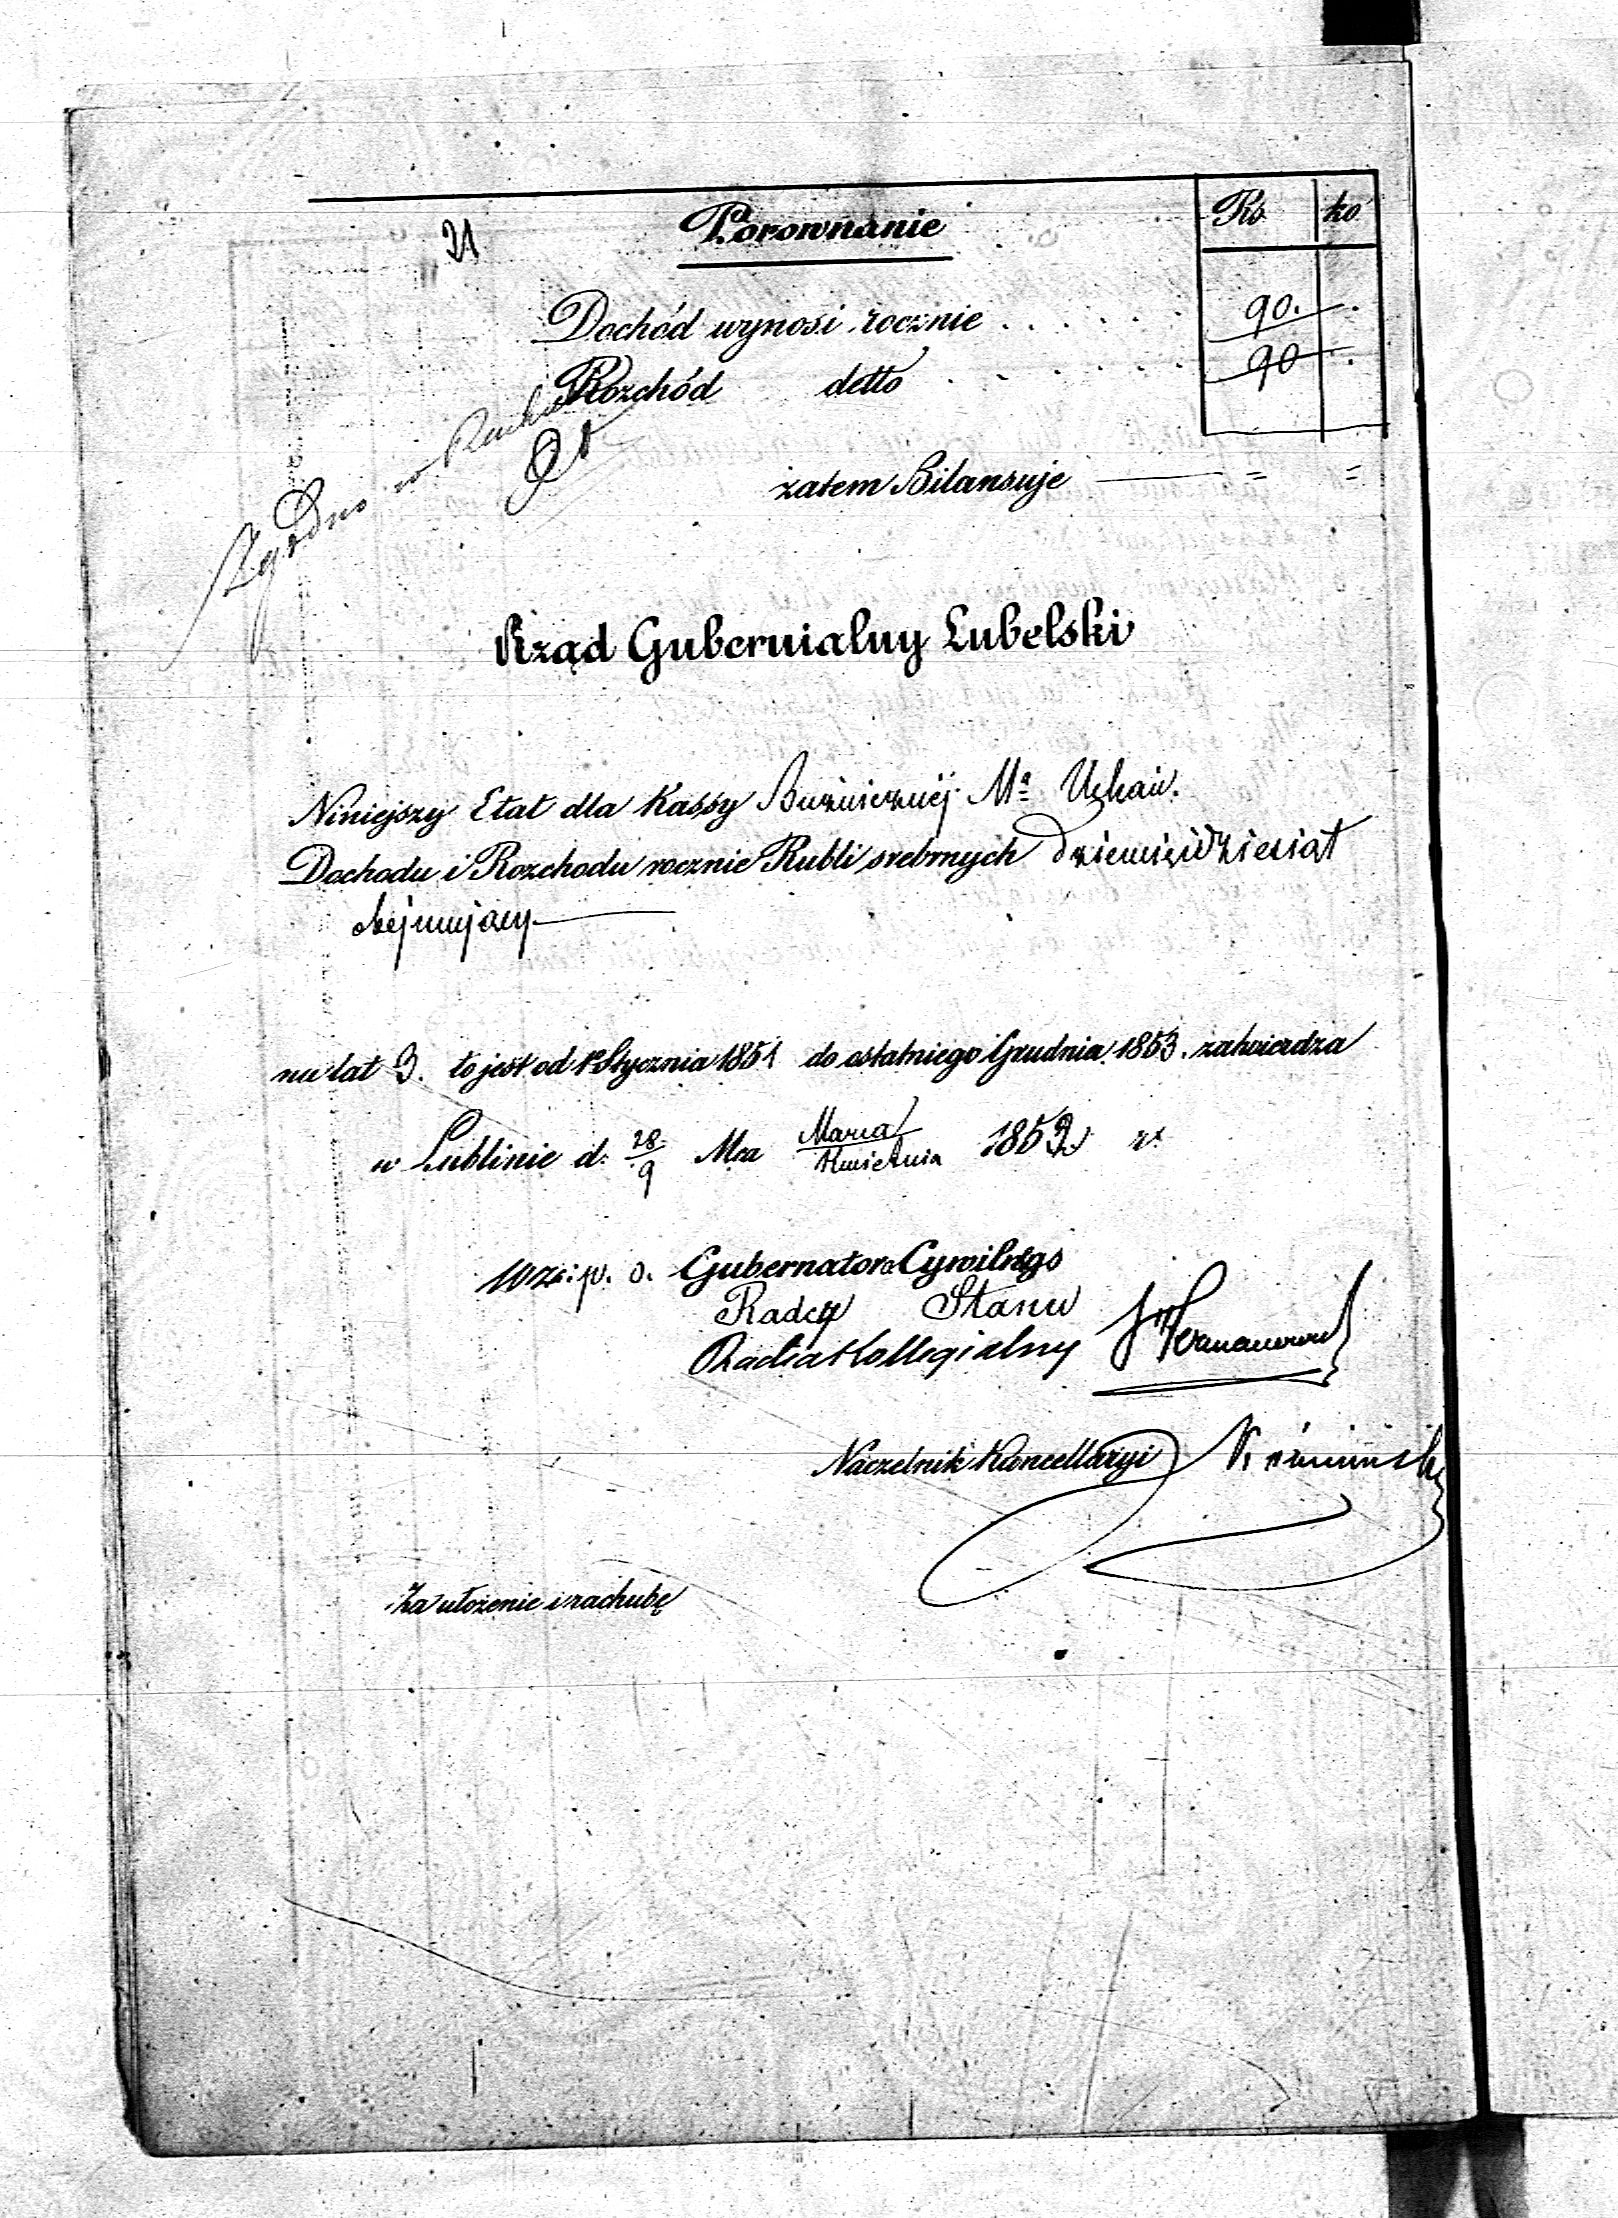 21
Porownanie Rs ko
Dochód wynosi rocznie . . . . . 90. .
Rozchód detto . . . . . 90 .
zatem Bilansuje — = =
Zgodno w
Rząd Gubernialny Lubelski
Niniejszy Etat dla Kassy Bużniczniéj Mᵃ Uchań.
Dochodu i Rozchodu rocznie Rubli srebrnych dziewięćdziesiąt
obejmujący —
na lat 3. to jest od 1º Stycznia 1851 do ostatniego Grudnia 1853. zatwierdza
w Lublinie d. 28/9 Mca Marca/Kwietnia 1852 r.
W z: p. o. Gubernatora Cywilnego
Radcy Stanu
Radca Kollegialny
Naczelnik Kancellaryi
Za ułożenie i rachubę